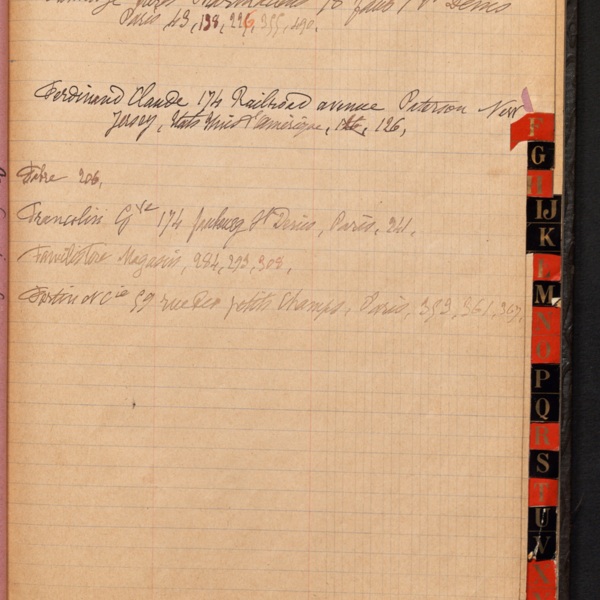 Paris 43, 138, 226, 355, 490.
Ferdinand Claude 174 Railroad avenue Peterson New
Jersey, Etats Unis d'amérique, 126,
Fabre 206,
Francolin Gve 174 faubourg St Denis, Paris, 24.
Familistère Magasin, 284, 293, 308,
Fortin et Cie 59 rue des petits Champs, Paris, 353, 361, 367,
F
G
H
IJ
K
L
M
N
O
P
Q
R
S
T
U
V